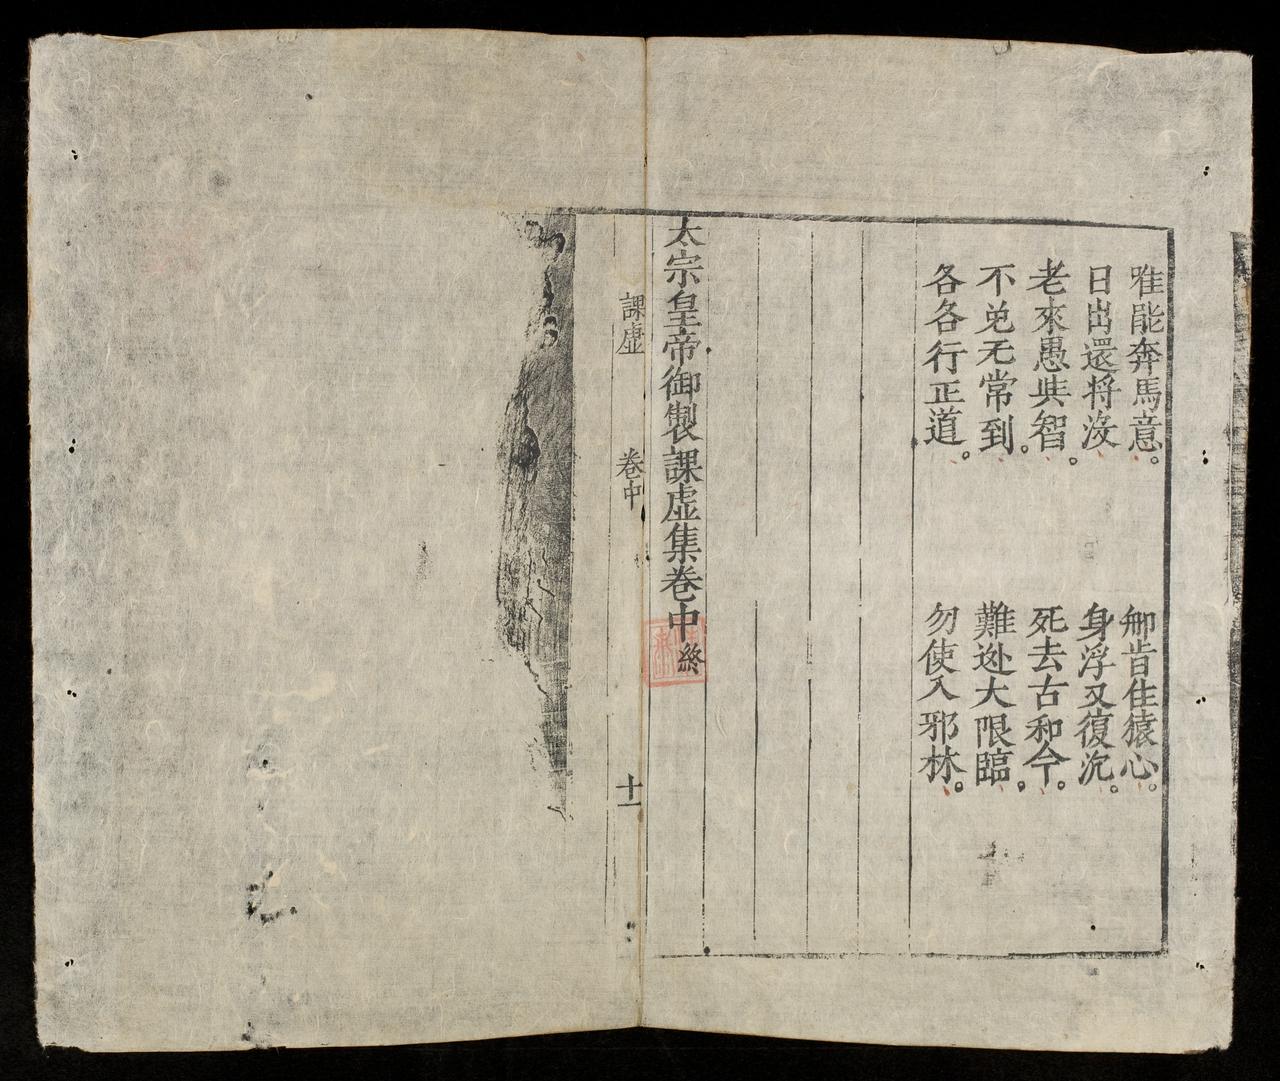 雖能奔馬意。 却肯住猿心。
日出還將沒 身浮又復沉。
老來愚與智。 死去古和今。
不免无常到。 難逃大限臨。
各各行正道。 勿使入邪林。
太宗皇帝御製課虛集卷中 終
課虛 卷中 十一